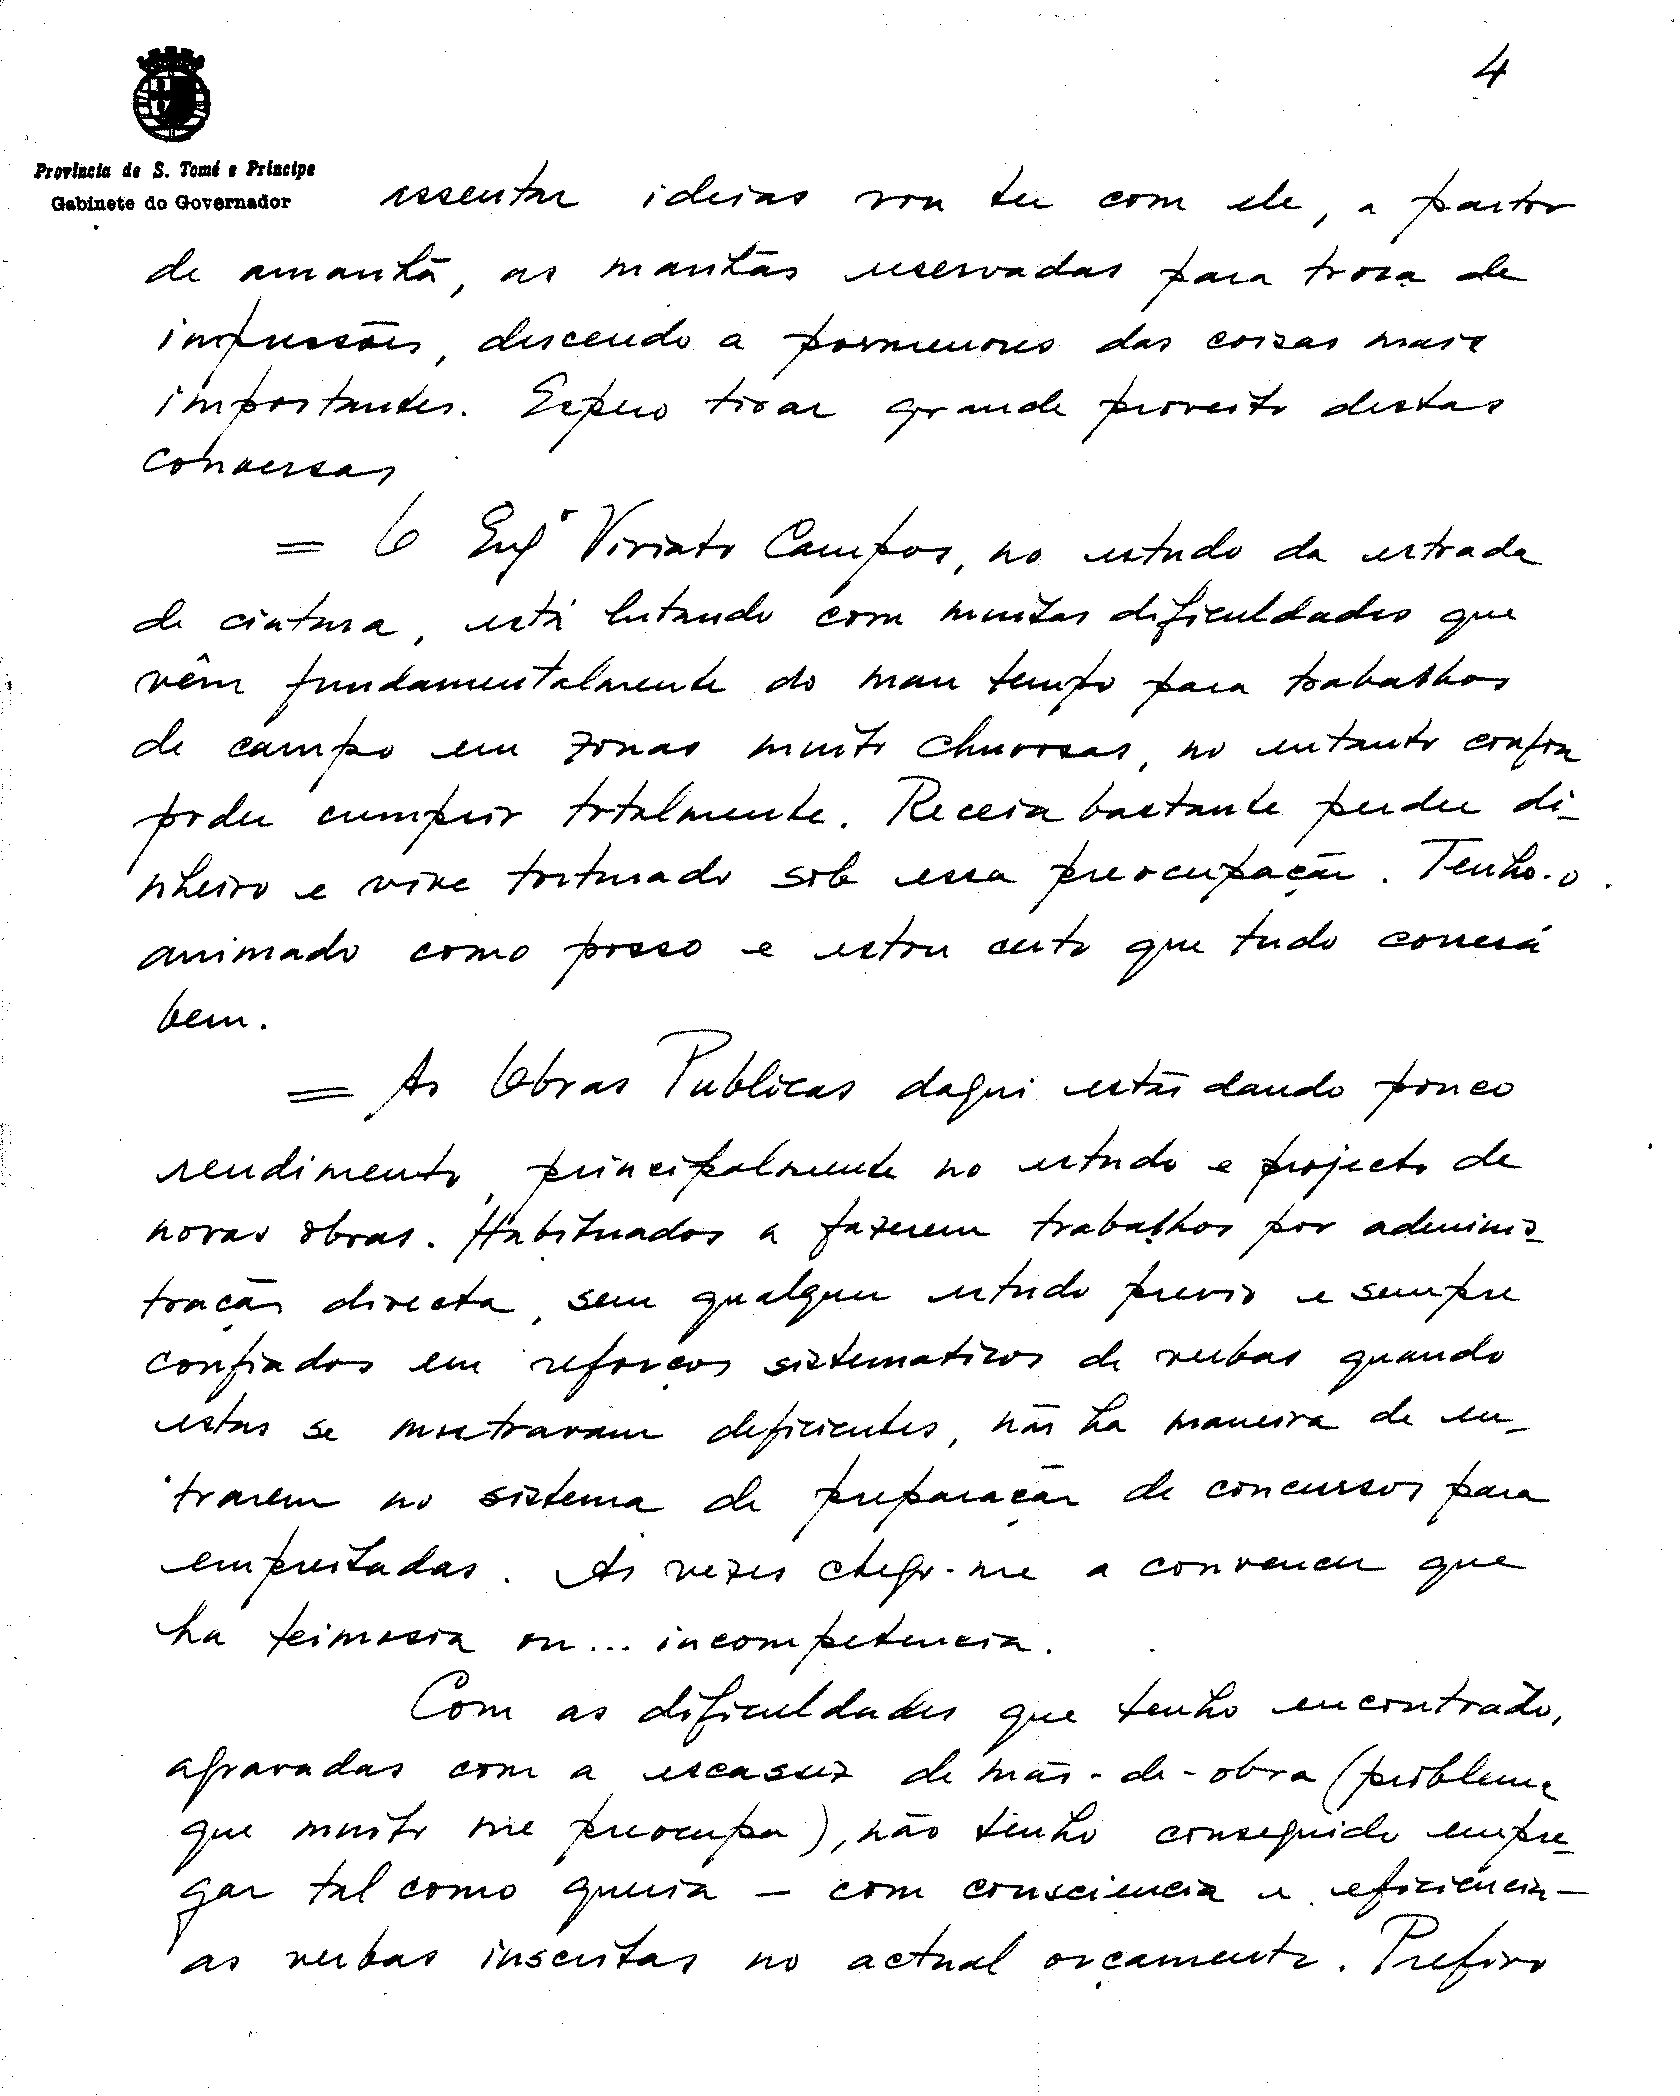 4
Província de S. Tomé e Príncipe
Gabinete do Governador
assentar ideias vou ter com ele, a partir
de amanhã, as manhãs reservadas para troca de
impressões, descendo a pormenores das coisas mais
importantes. Espero tirar grande proveito destas
conversas
= O Engº Viriato Campos, no estudo da estrada
de cintura, está lutando com muitas dificuldades que
vêm fundamentalmente do mau tempo para trabalhos
de campo em zonas muito chuvosas, no entanto confia
poder cumprir totalmente. Receia bastante perder di-
nheiro e vive torturado sob essa preocupação. Tenho-o
animado como posso e estou certo que tudo correrá
bem.
= As Obras Publicas daqui estão dando pouco
rendimento, principalmente no estudo e projecto de
novas obras. Habituados a fazerem trabalhos por adminis-
tração directa, sem qualquer estudo previo e sempre
confiados em reforços sistematicos de verbas quando
estas se mostravam deficientes, não ha maneira de en-
trarem no sistema de preparação de concursos para
empreitadas. As vezes chego-me a convencer que
ha teimosia ou... incompetencia.
Com as dificuldades que tenho encontrado,
agravadas com a escassez de mão-de-obra (problema
que muito me preocupa), não tenho conseguido empre-
gar tal como queria - com consciencia e eficiência -
as verbas inscritas no actual orçamento. Prefiro